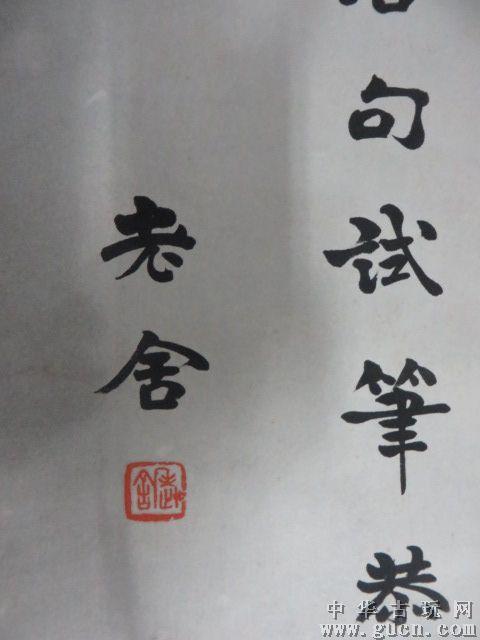 句試筆恭
老舍
老舍
中华古玩网
www.gucn.com